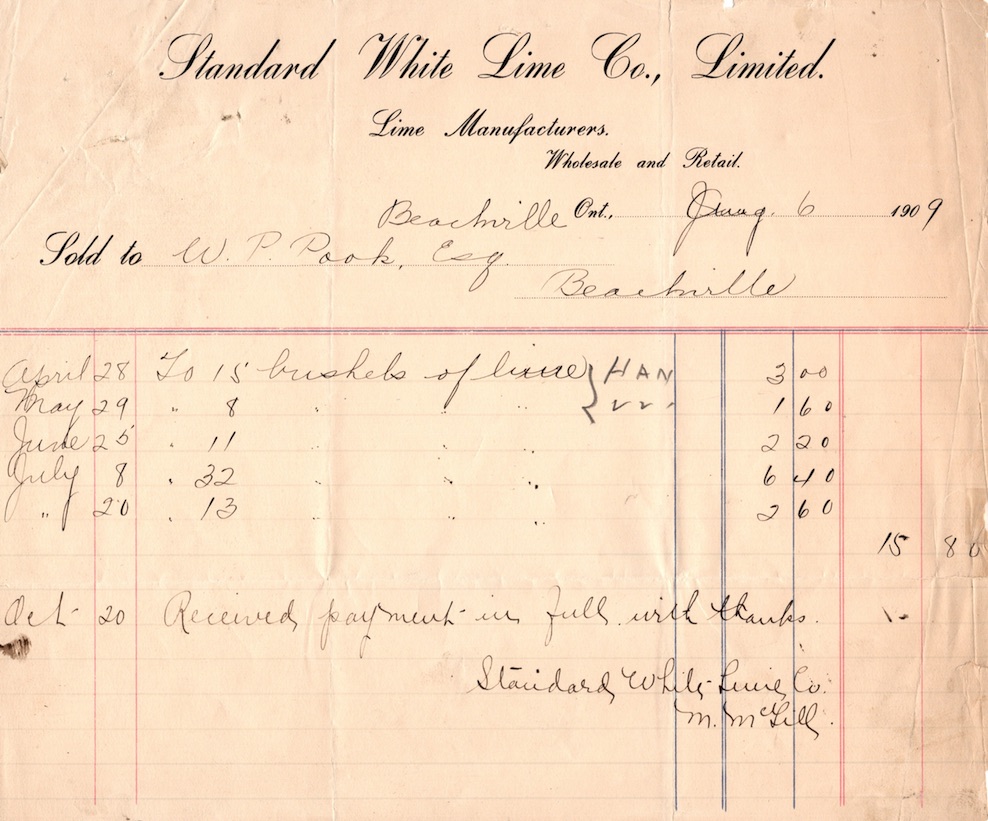 Standard White Lime Co., Limited.
Lime Manufacturers.
Wholesale and Retail.
Beachville Ont., Aug. 6 1909
Sold to W. P. Pook, Esq.
Beachville
April 28 To 15 bushels of lime } HAN 3 00
May 29 " 8 " " " 1 60
June 25 " 11 " " 2 20
July 8 " 32 " " " 6 40
" 20 " 13 " " " 2 60
15 80
Oct 20 Received payment in full with thanks.
Standard White Lime Co.
M. McGill.